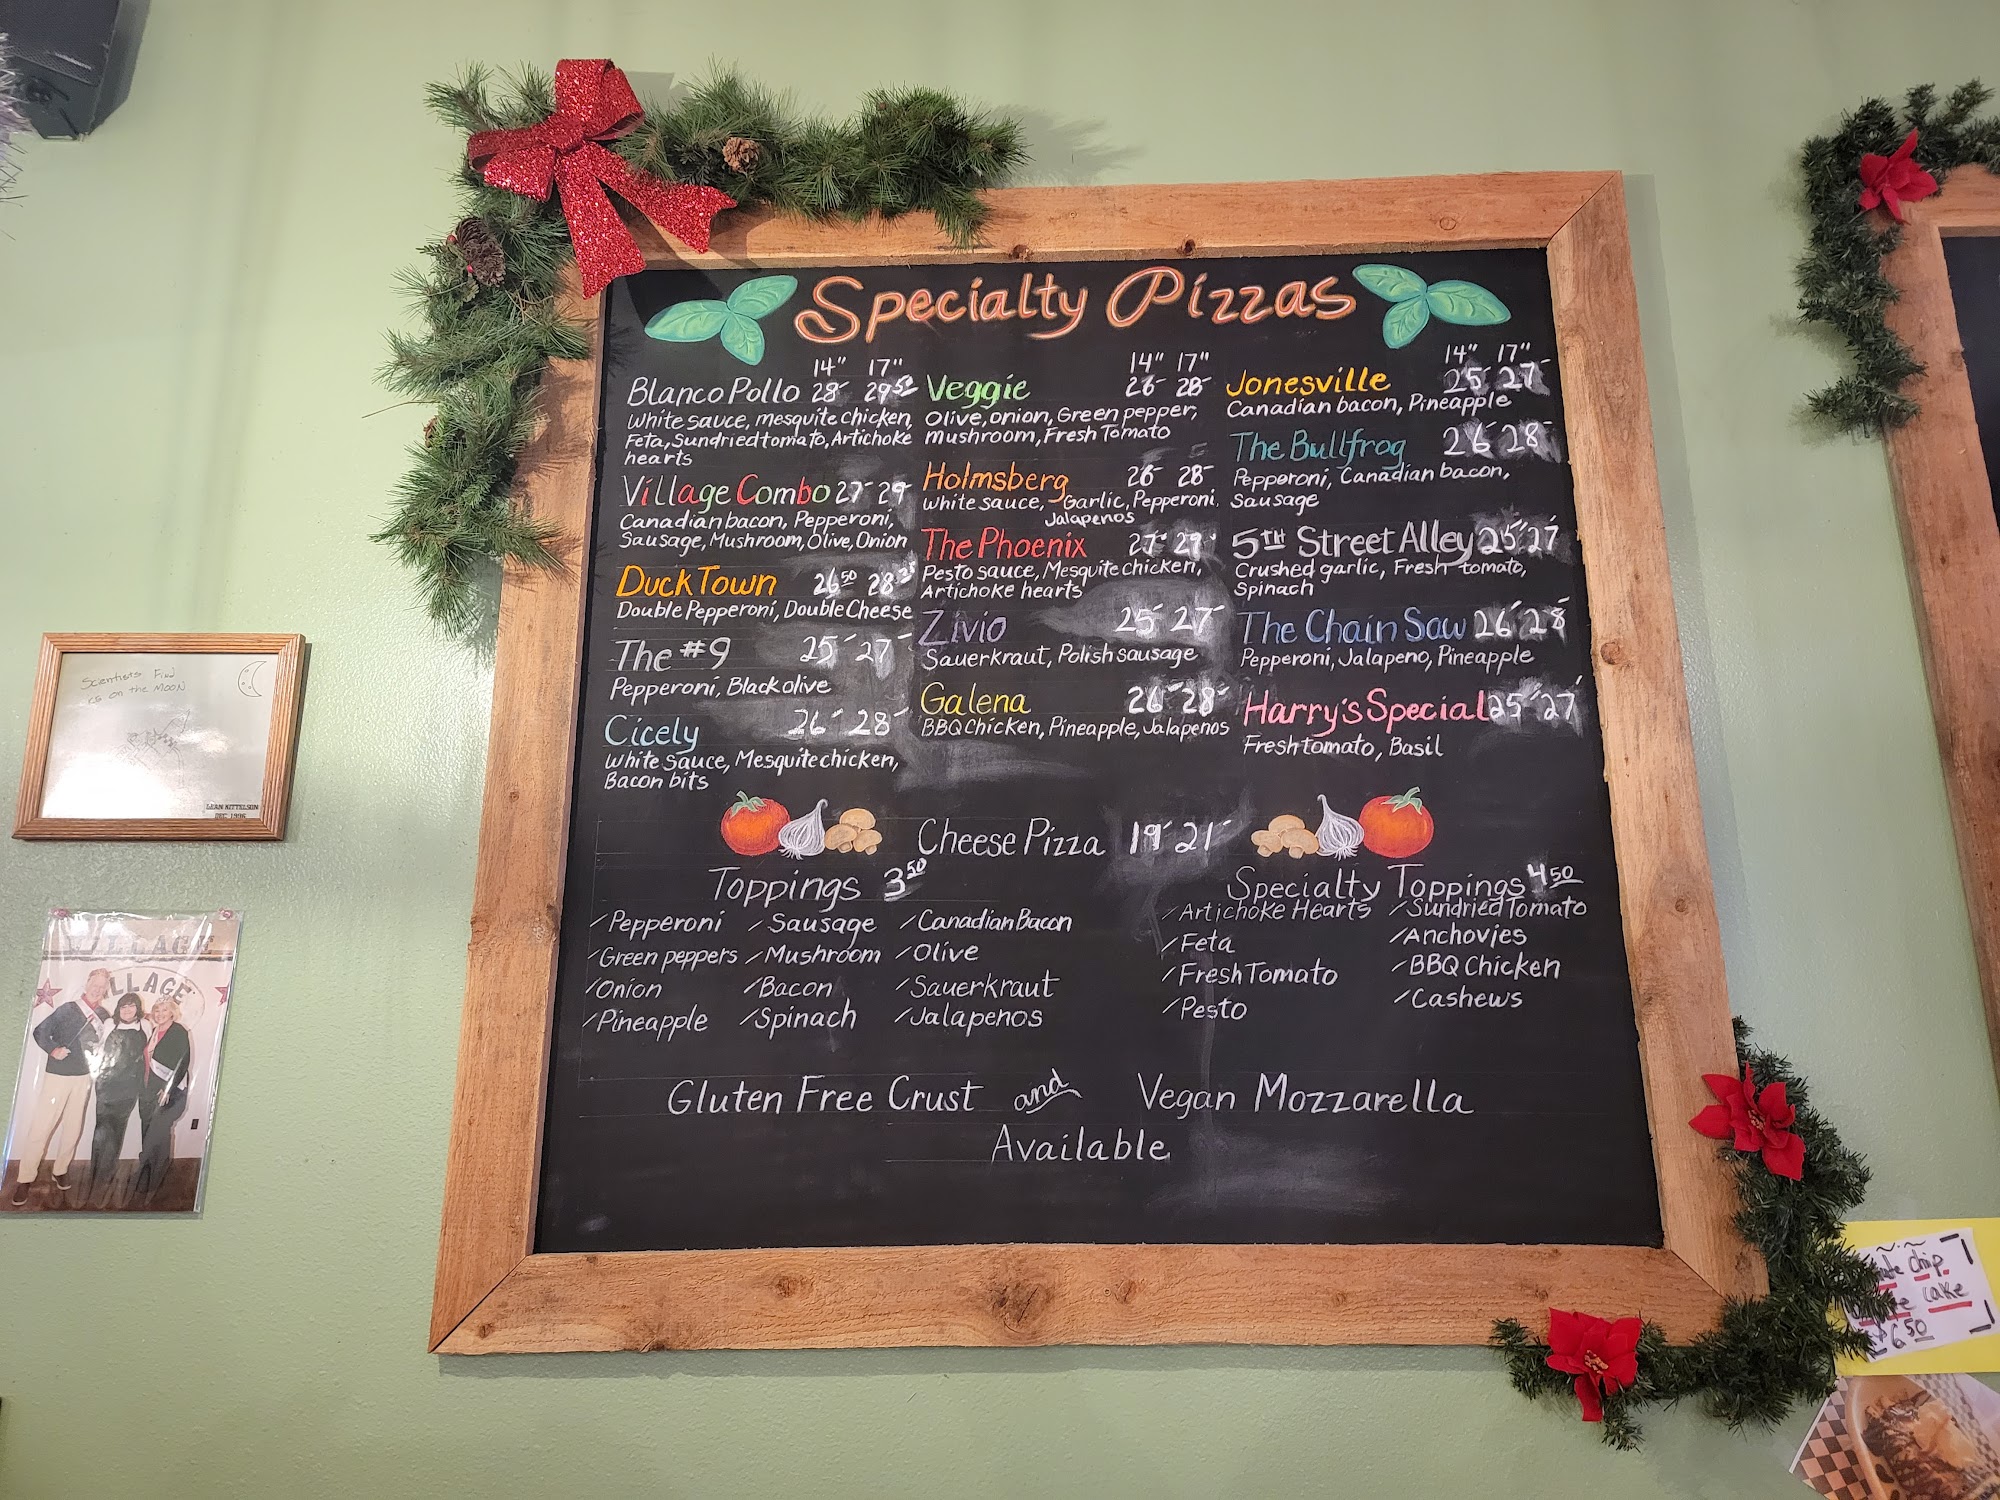 Specialty Pizzas
14" 17"
Blanco Pollo 28- 29.50
White sauce, mesquite chicken,
Feta, Sundried tomato, Artichoke
hearts
Village Combo 27- 29-
Canadian bacon, Pepperoni,
Sausage, Mushroom, Olive, Onion
Duck Town 26.50 28
Double Pepperoni, Double Cheese
The #9 25- 27-
Pepperoni, Black olive
Cicely 26- 28-
White sauce, Mesquite chicken,
Bacon bits
14" 17"
Veggie 26- 28-
Olive, onion, Green pepper,
mushroom, Fresh Tomato
Holmsberg 26- 28-
White sauce, Garlic, Pepperoni,
Jalapenos
The Phoenix 27- 29-
Pesto sauce, Mesquite chicken,
Artichoke hearts
Zivio 25- 27-
Sauerkraut, Polish sausage
Galena 26- 28-
BBQ Chicken, Pineapple, Jalapenos
14" 17"
Jonesville 25- 27-
Canadian bacon, Pineapple
The Bullfrog 26- 28-
Pepperoni, Canadian bacon,
Sausage
5TH Street Alley 25- 27-
Crushed garlic, Fresh tomato,
Spinach
The Chain Saw 26- 28-
Pepperoni, Jalapeno, Pineapple
Harry's Special 25- 27-
Fresh tomato, Basil
Cheese Pizza 19- 21-
Toppings 3.50
Pepperoni Sausage Canadian Bacon
Green peppers Mushroom Olive
Onion Bacon Sauerkraut
Pineapple Spinach Jalapenos
Specialty Toppings 4.50
Artichoke Hearts Sundried Tomato
Feta Anchovies
Fresh Tomato BBQ Chicken
Pesto Cashews
Gluten Free Crust and Vegan Mozzarella
Available
Scientists Find
on the MOON
LEAN KITTELSON
DEC 1996
VILLAGE
LLAGE
Chip
Cake
6.50